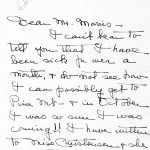 Dear Mr. Morris -
I can't bear to
tell you that I have
been sick for over a
month, & do not see how
I can possibly get to
Pine Mt - & in October
I was so sure I was
coming!! I have written
to Miss Christensen & she